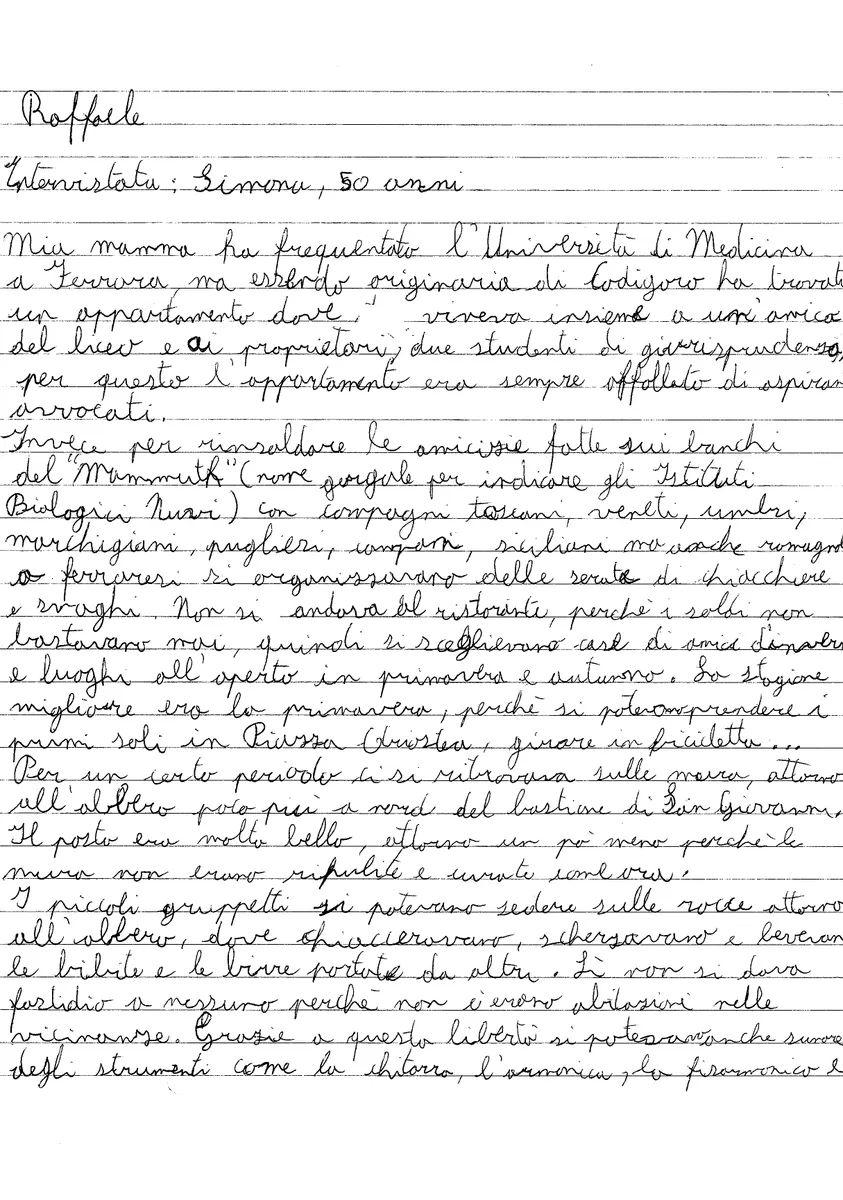 Raffaele
Intervistata: Simona, 50 anni
Mia mamma ha frequentato l'Università di Medicina
a Ferrara, ma essendo originaria di Codigoro ha trovat
un appartamento dove viveva insieme a un'amica
del liceo e ai proprietari, due studenti di giurisprudenza,
per questo l'appartamento era sempre affollato di aspiran
avvocati.
Invece per rinsaldare le amicizie fatte sui banchi
del "Mammuth" (nome gergale per indicare gli Istituti
Biologici Nuovi) con compagni toscani, veneti, umbri,
marchigiani, pugliesi, campani, siciliani ma anche romagnol
o ferraresi si organizzavano delle serate di chiacchiere
e svaghi. Non si andava al ristorante, perchè i soldi non
bastavano mai, quindi si sceglievano case di amici d'inver
e luoghi all'aperto in primavera e autunno. La stagione
migliore era la primavera, perchè si potevano prendere i
primi soli in Piazza Ariostea, girare in bicicletta...
Per un certo periodo ci si ritrovava sulle mura, attorno
all'albero poco più a nord del bastione di San Giovanni.
Il posto era molto bello, attorno un po' meno perchè le
mura non erano ripulite e curate come ora.
I piccoli gruppetti si potevano sedere sulle rocce attorno
all'albero, dove chiaccieravano, scherzavano e bevevan
le bibite e le birre portate da altri. Lì non si dava
fastidio a nessuno perchè non c'erano abitazioni nelle
vicinanze. Grazie a questa libertà si potevano anche suonare
degli strumenti come la chitarra, l'armonica, la fisarmonica e